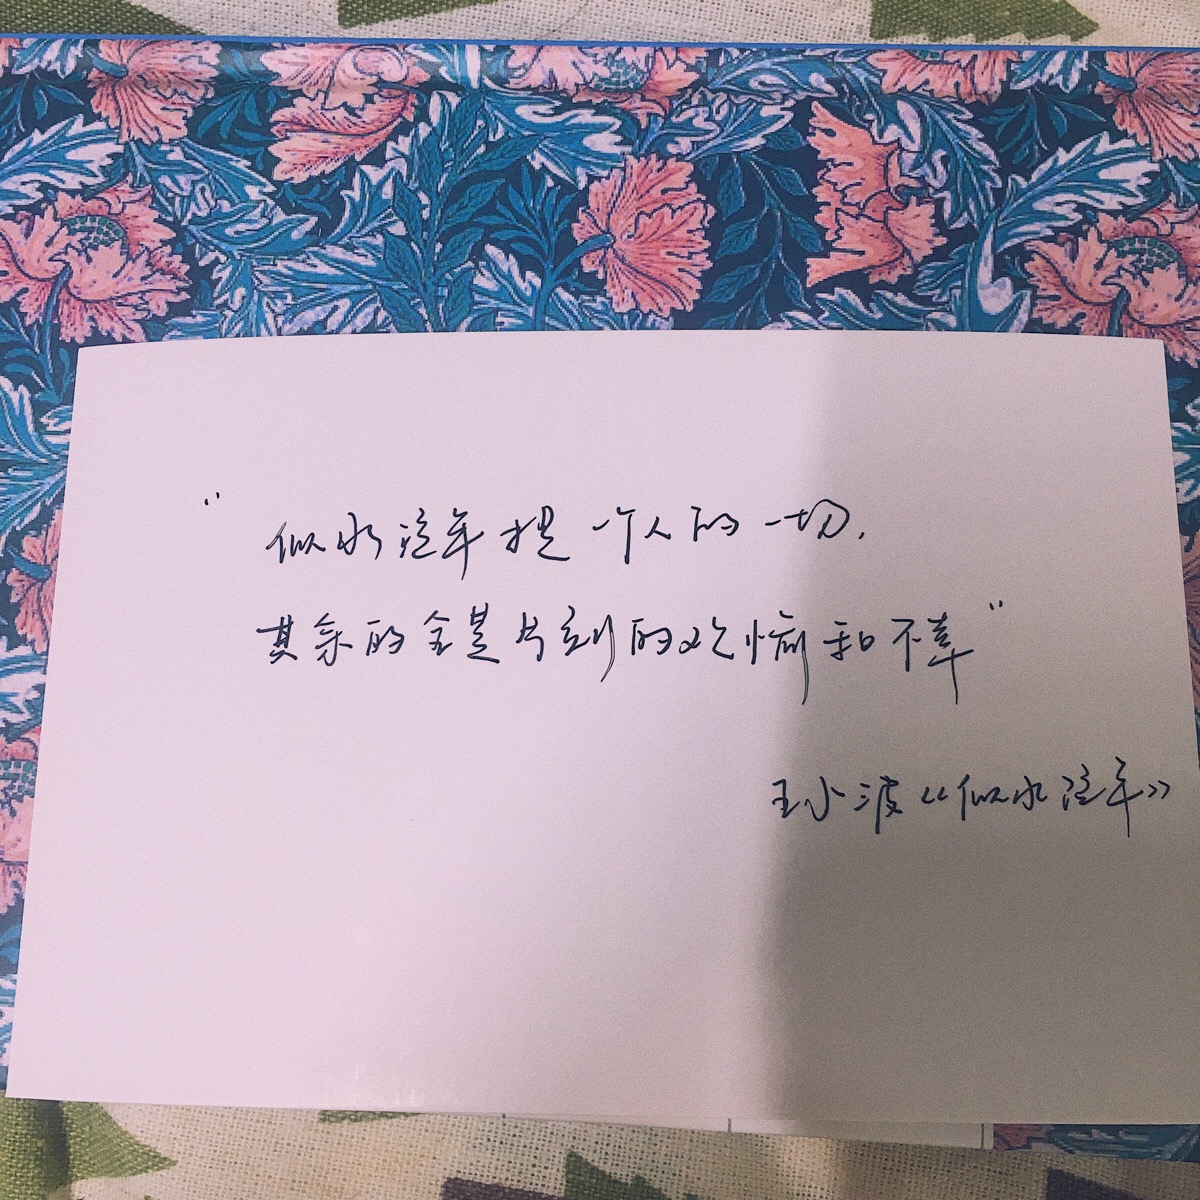 “似水流年才是一个人的一切,
其余的全是片刻的欢愉和不幸”
王小波《似水流年》